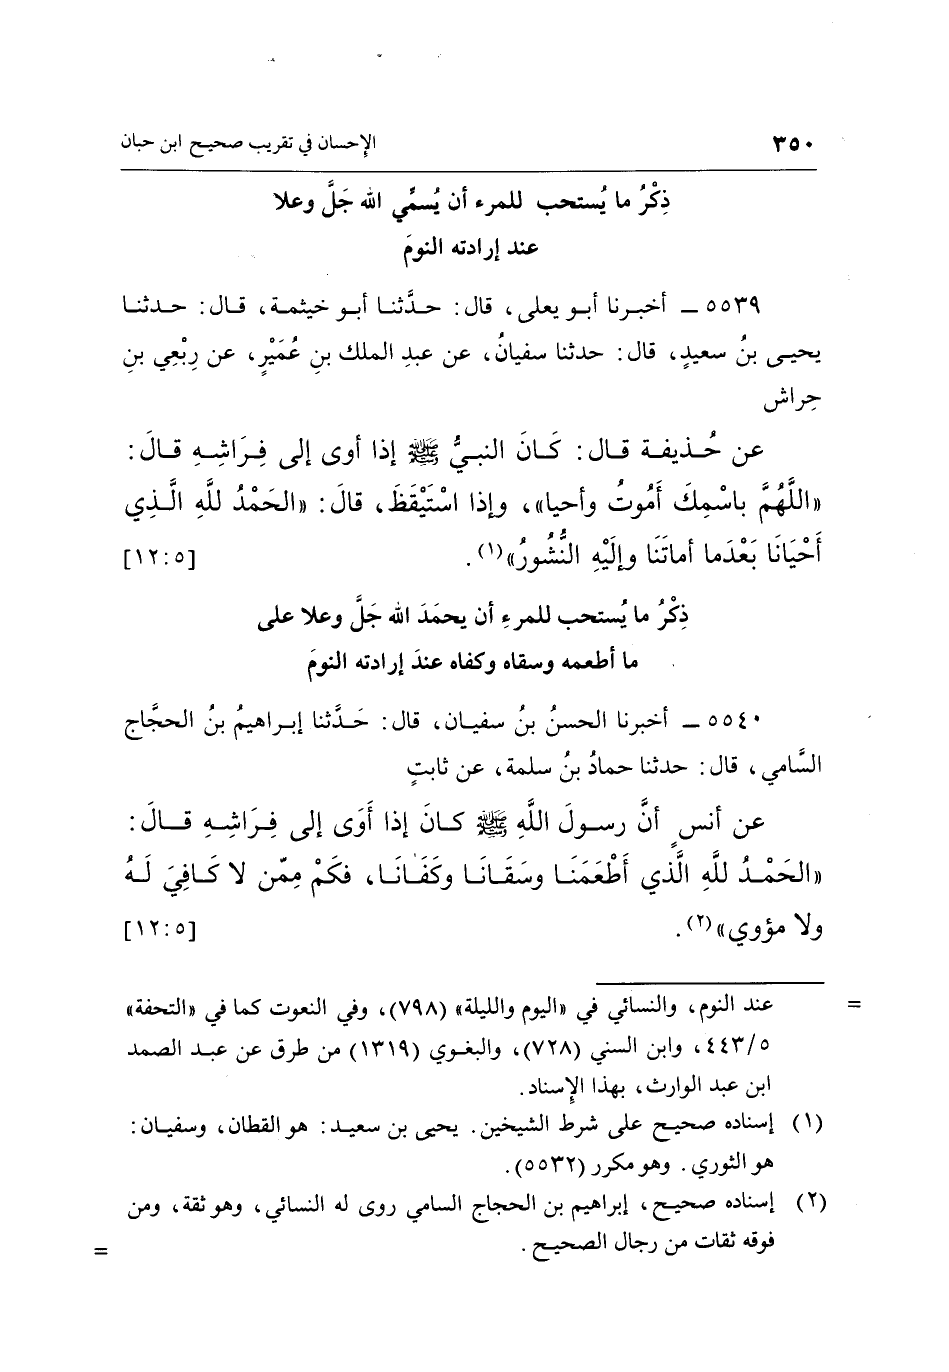 ٣٥٠ الإحسان في تقريب صحيح ابن حبان
ذِكْرُ ما يُستحب للمرء أن يُسمِّي الله جَلَّ وعلا
عند إرادته النومَ
٥٥٣٩ ــ أخبرنا أبو يعلى، قال: حدَّثنا أبو خيثمة، قال: حدثنا
يحيى بنُ سعيدٍ، قال: حدثنا سفيانُ، عن عبدِ الملك بنِ عُمَيْرٍ، عن رِبْعِي بنِ
حِراش
عن حُذيفة قال: كَانَ النبيُّ ﷺ إذا أوى إلى فِرَاشِهِ قالَ:
«اللَّهُمَّ باسْمِكَ أَمُوتُ وأحيا»، وإذا اسْتَيْقَظَ، قالَ: «الحَمْدُ للَّهِ الَّذِي
أَحْيَانَا بَعْدَما أماتَنَا وإلَيْهِ النُّشُورُ»(١). [٥:١٢]
ذِكْرُ ما يُستحب للمرءِ أن يحمَدَ الله جَلَّ وعلا على
ما أطعمه وسقاه وكفاه عندَ إرادته النومَ
٥٥٤٠ ــ أخبرنا الحسنُ بنُ سفيان، قال: حَدَّثنا إبراهيمُ بنُ الحجَّاج
السَّامي، قال: حدثنا حمادُ بنُ سلمة، عن ثابتٍ
عن أنسٍ أنَّ رسولَ اللَّهِ ﷺ كانَ إذا أَوَى إلى فِرَاشِهِ قالَ:
«الحَمْدُ للَّهِ الَّذي أَطْعَمَنَا وسَقَانَا وكَفَانَا، فكَمْ مِمّن لا كَافِيَ لَهُ
ولا مؤوي»(٢). [٥:١٢]
= عند النوم، والنسائي في «اليوم والليلة» (٧٩٨)، وفي النعوت كما في «التحفة»
٤٤٣/٥، وابن السني (٧٢٨)، والبغوي (١٣١٩) من طرق عن عبد الصمد
ابن عبد الوارث، بهذا الإسناد.
(١) إسناده صحيح على شرط الشيخين. يحيى بن سعيد: هو القطان، وسفيان:
هو الثوري. وهو مكرر (٥٥٣٢).
(٢) إسناده صحيح، إبراهيم بن الحجاج السامي روى له النسائي، وهو ثقة، ومن
فوقه ثقات من رجال الصحيح. =